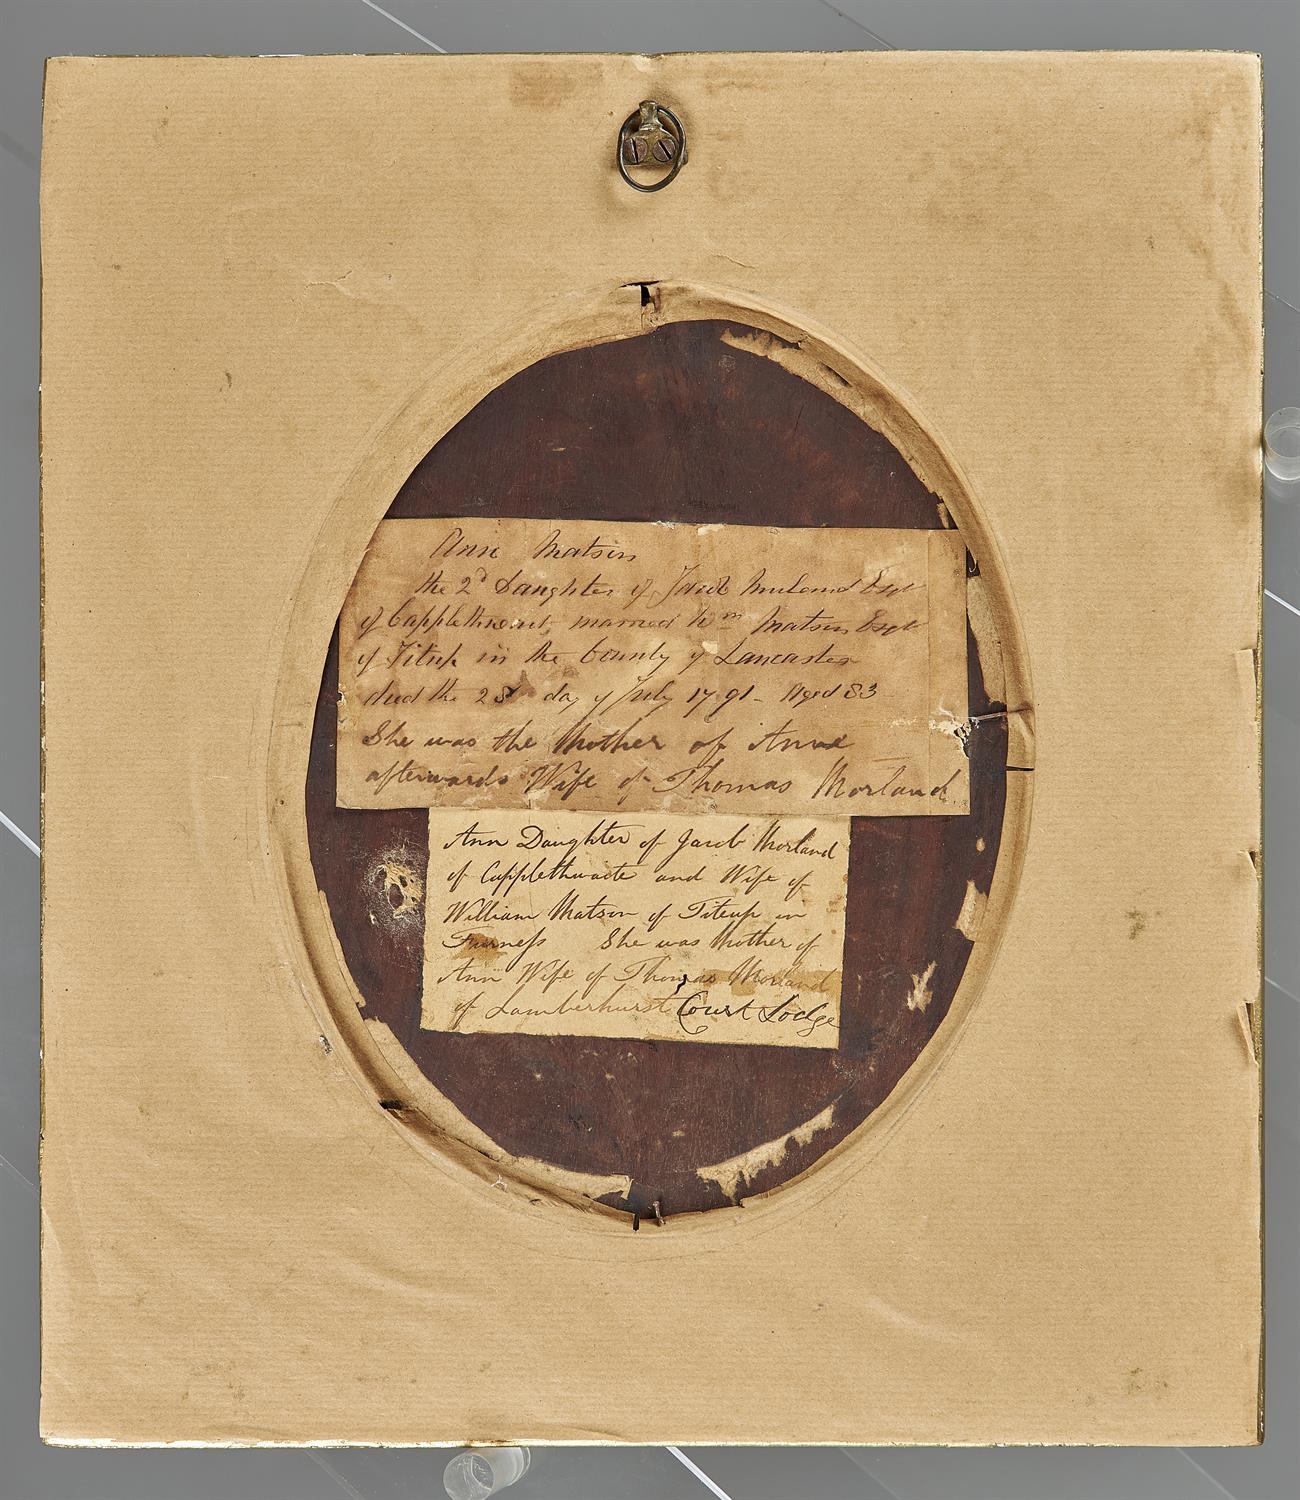 Ann Matson
the 2d Daughter of Jacob Morland Esqr
of Capplethwait, married Wm Matson Esqr
of Titup in the County of Lancaster
died the 28 day of July 1791 - Aged 83
She was the Mother of Anne
afterwards Wife of Thomas Morland.
Ann Daughter of Jacob Morland
of Capplethwaite and Wife of
William Matson of Titeup in
Furness She was Mother of
Ann Wife of Thomas Morland
of Lamberhurst Court Lodge